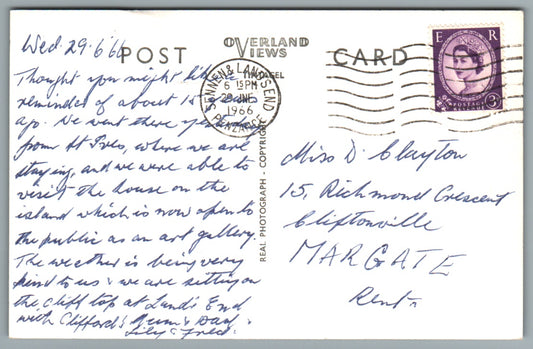 Wed. 29.6.66
POST
OVERLAND
VIEWS
CARD
Thought you might like a
reminder of about 15 years
ago. We went there yesterday
from St Ives, where we are
staying, and we were able to
visit the house on the
island which is now open to
the public as an art gallery.
The weather is being very
kind to us & we are sitting on
the cliff top at Land's End
with Clifford's Mum & Dad.
Lily & Fred.
REAL PHOTOGRAPH - COPYRIGHT
SENNEN & LANDS END
6 15PM
29 JNE
1966
PENZANCE
E R
POSTAGE
3D
Miss D. Clayton
15, Richmond Crescent
Cliftonville
MARGATE
Kent